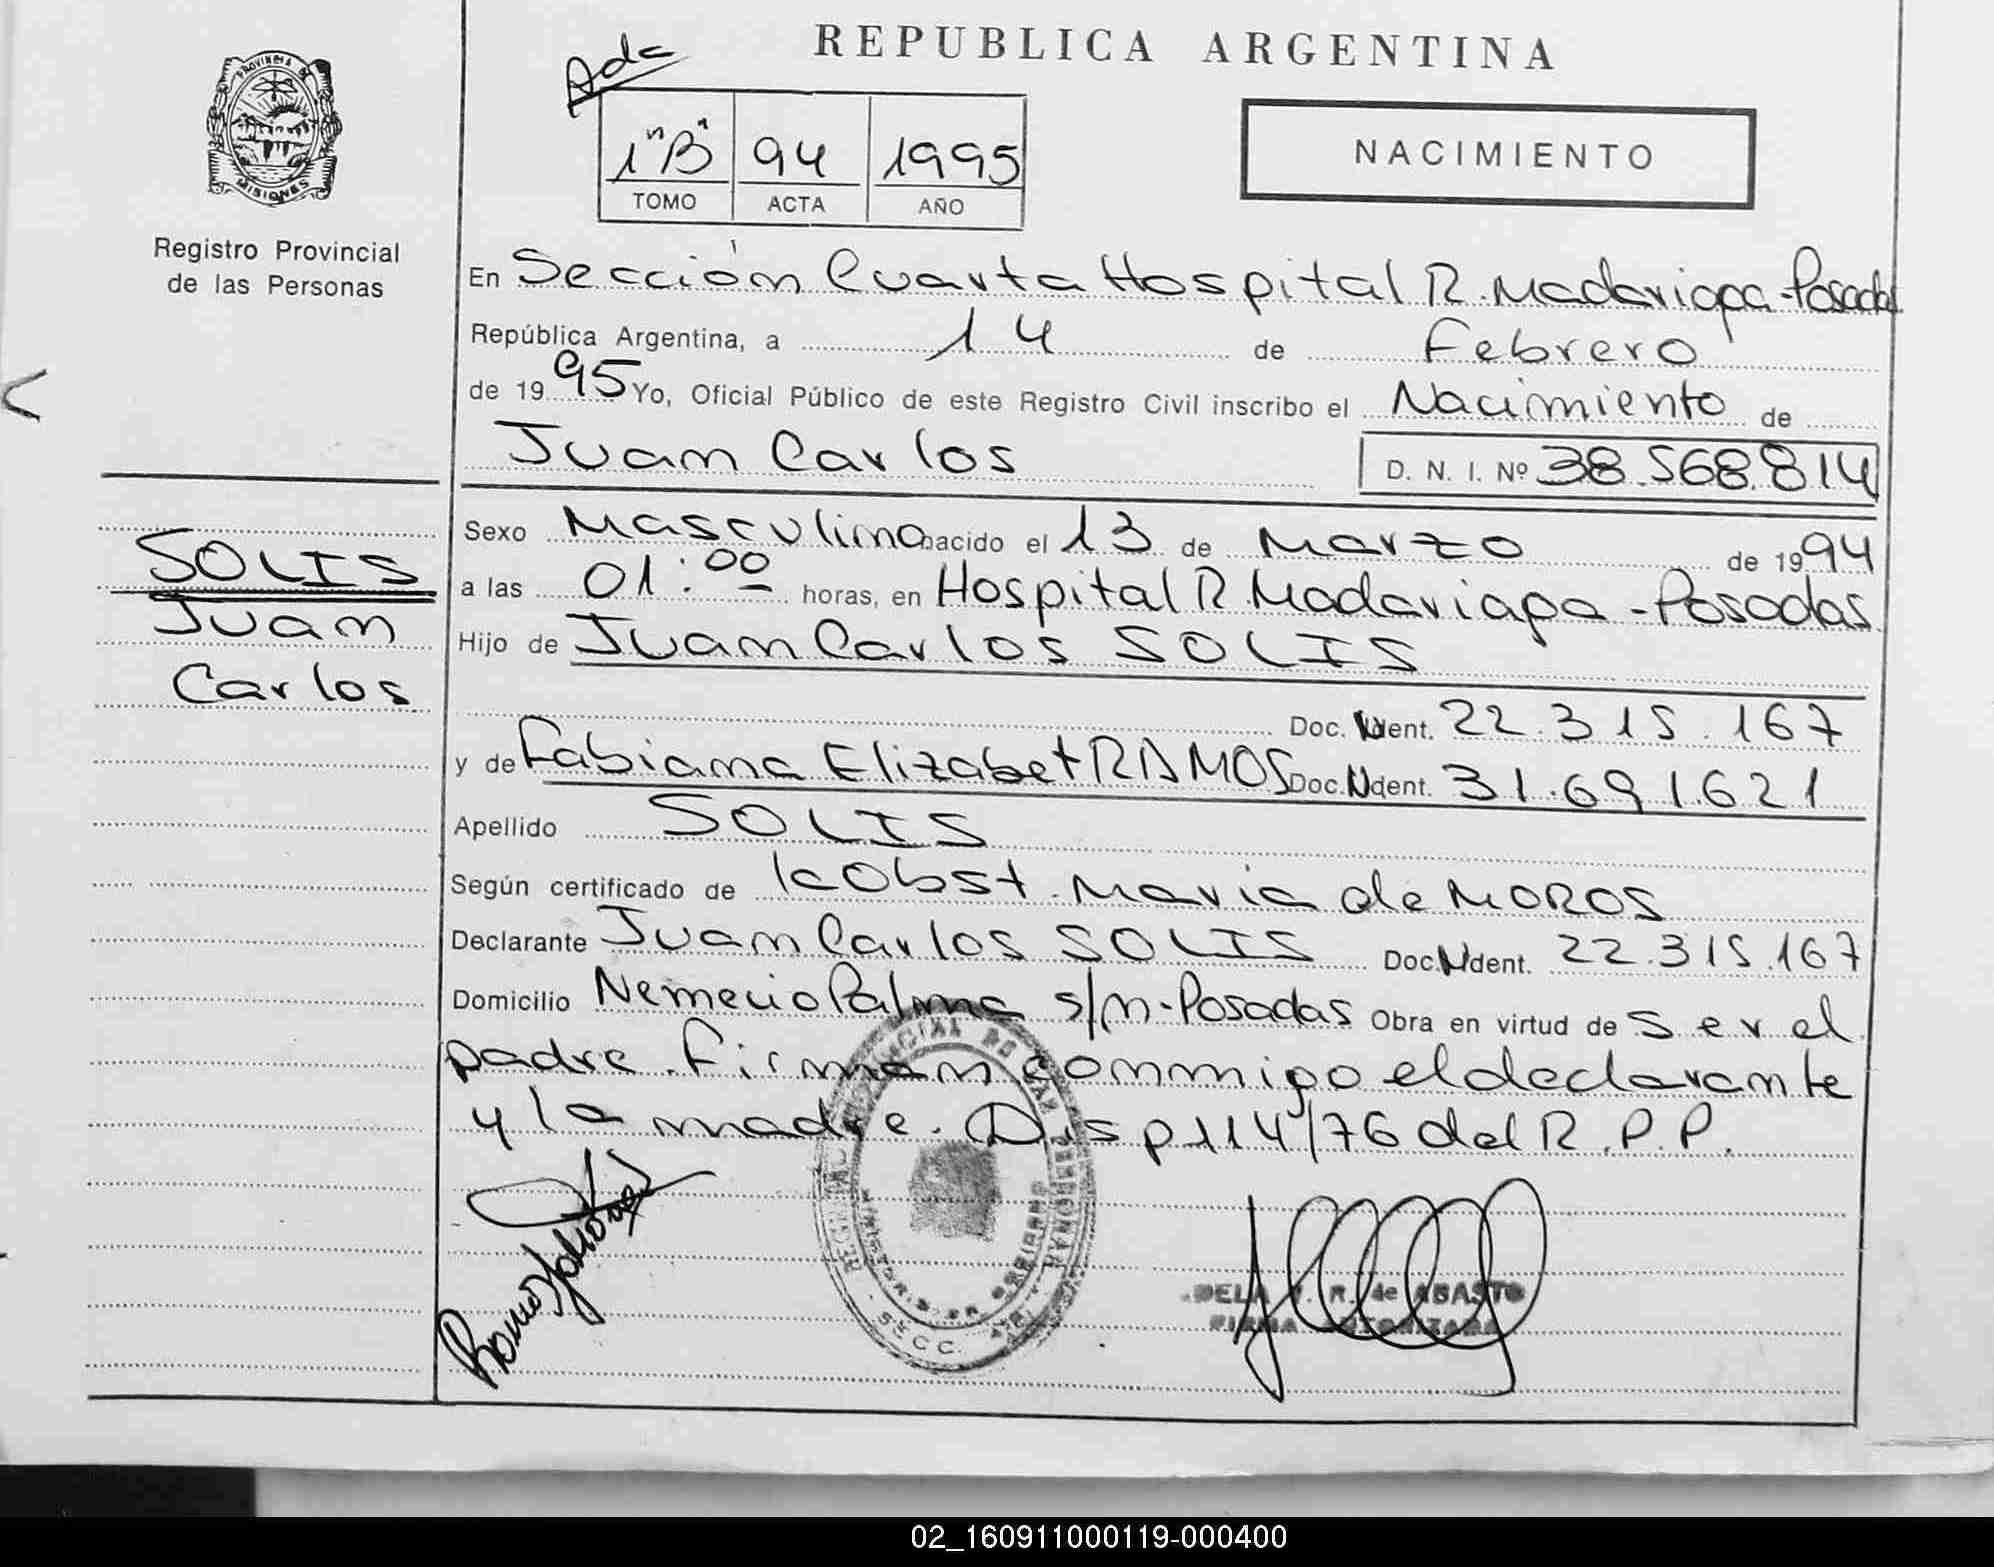 REPUBLICA ARGENTINA
PROVINCIA DE
MISIONES
Registro Provincial
de las Personas
Ada
1 "B" 94 1995
TOMO ACTA AÑO
NACIMIENTO
En Sección Cuarta Hospital R. Madariaga - Posadas
República Argentina, a 14 de Febrero
de 19 95 Yo, Oficial Público de este Registro Civil inscribo el Nacimiento de
Juan Carlos D. N. I. Nº 38.568.814
SOLIS
Juan
Carlos
Sexo Masculino nacido el 13 de Marzo de 19 94
a las 01:00 horas, en Hospital R. Madariaga - Posadas
Hijo de Juan Carlos SOLIS
Doc. Ident. 22.315.167
y de Fabiana Elizabet RAMOS Doc. Ident. 31.691.621
Apellido SOLIS
Según certificado de Obst. Maria de MOROS
Declarante Juan Carlos SOLIS Doc. Ident. 22.315.167
Domicilio Nemecio Palma s/n - Posadas Obra en virtud de ser el
padre. Firman conmigo el declarante
y la madre. Disp 114/76 del R.P.P.
R. de ABASTO
FIRMA AUTORIZADA
SECC.
02_160911000119-000400